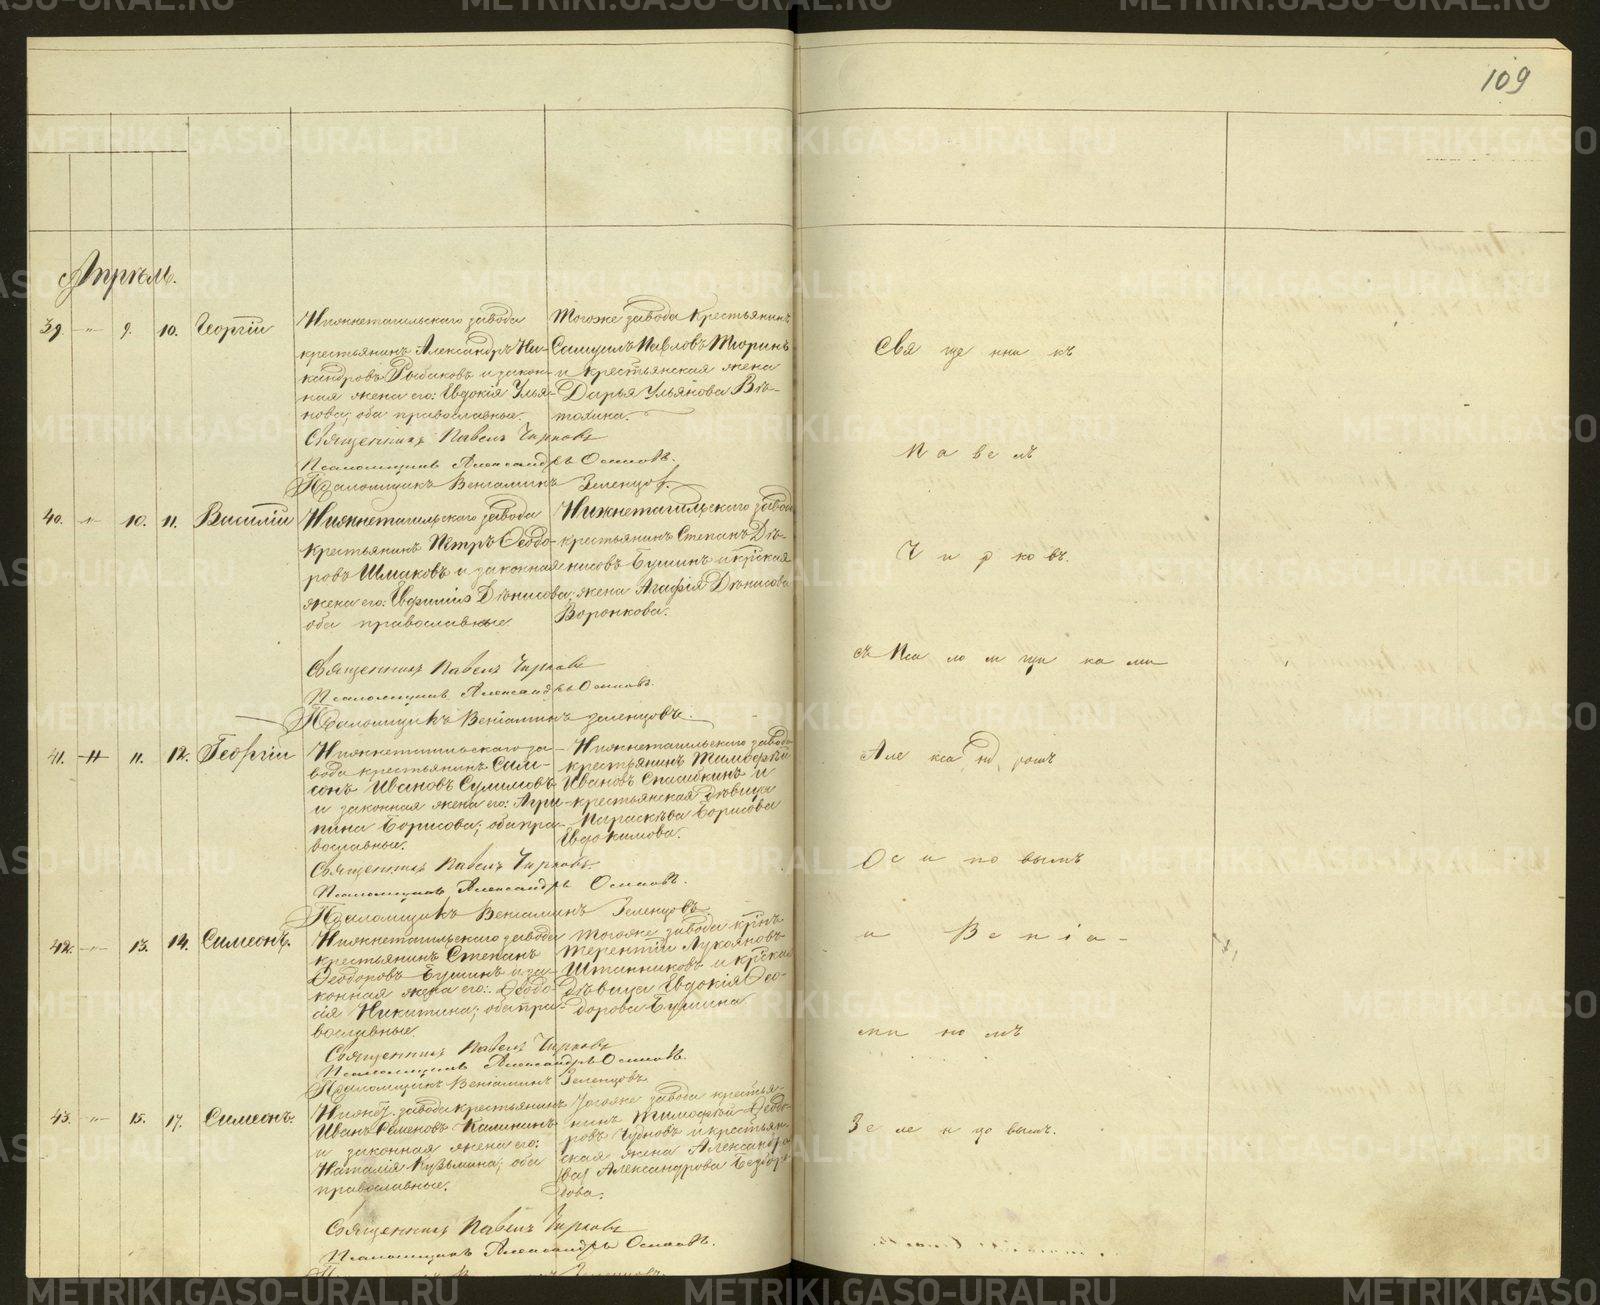 109
Апрѣль.
39. " 9. 10. Георгій
Нижнетагильскаго завода
крестьянинъ Александръ Ни-
кандровъ Рыбаковъ и закон-
ная жена его: Евдокія Улья-
нова; оба православные.
Тогоже завода Крестьянинъ
Самуилъ Павловъ Тюринъ
и крестьянская жена
Дарья Ульянова Вѣ-
тошкина.
Священникъ Павелъ Чирковъ
Псаломщикъ Александръ Осиповъ.
Псаломщикъ Веніаминъ Зеленцовъ.
40. " 10. 11. Василій
Нижнетагильскаго завода
крестьянинъ Петръ Ѳеодо-
ровъ Шмаковъ и законная
жена его: Евфимія Дѣнисова;
оба православные.
Нижнетагильскаго завода
крестьянинъ Степанъ Дѣ-
нисовъ Бушинъ и кр̃ская
жена Агафія Дѣнисова
Воронкова.
Священникъ Павелъ Чирковъ
Псаломщикъ Александръ Осиповъ.
Псаломщикъ Веніаминъ Зеленцовъ.
41. " 11. 12. Георгій
Нижнетагильскаго за-
вода крестьянинъ Сам-
сонъ Ивановъ Сулимовъ
и законная жена его: Агри-
пина Борисова; оба пра-
вославные.
Нижнетагильскаго завода
крестьянинъ Тимофѣй
Ивановъ Спасибкинъ и
крестьянская дѣвица
Параскѣва Борисова
Евдокимова.
Священникъ Павелъ Чирковъ.
Псаломщикъ Александръ Осиповъ.
Псаломщикъ Веніаминъ Зеленцовъ.
42. " 13. 14. Симеонъ.
Нижнетагильскаго завода
крестьянинъ Степанъ
Ѳеодоровъ Бушинъ и за-
конная жена его: Ѳеодо-
сія Никитина; оба пра-
вославные.
тогоже завода кр̃нъ
Терентій Лукояновъ
Штанниковъ и кр̃ская
дѣвица Евдокія Ѳео-
дорова Бушина.
Священникъ Павелъ Чирковъ
Псаломщикъ Александръ Осиповъ.
Псаломщикъ Веніаминъ Зеленцовъ
43. " 15. 17. Симеонъ.
Нижнет. завода крестьянинъ
Иванъ Семеновъ Калининъ
и законная жена его:
Наталія Кузьмина; оба
православные.
Тогоже завода крестья-
нинъ Тимофѣй Ѳеодо-
ровъ Чудновъ и крестьян-
ская жена Александра
Александрова
Священникъ Павелъ Чирковъ
Псаломщикъ Александръ Осиповъ.
Священникъ
Павелъ
Чирковъ.
съ Псаломщиками
Александромъ
Осиповымъ
и Веніа-
миномъ
Зеленцовымъ.
METRIKI.GASO-URAL.RU